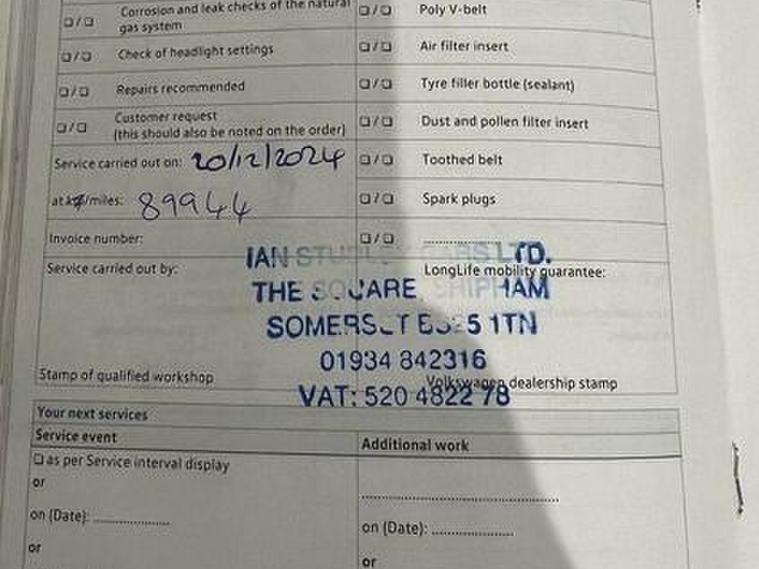 ❏/❏ Corrosion and leak checks of the natural gas system ❏/❏ Poly V-belt
❏/❏ Check of headlight settings ❏/❏ Air filter insert
❏/❏ Repairs recommended ❏/❏ Tyre filler bottle (sealant)
❏/❏ Customer request ❏/❏ Dust and pollen filter insert
(this should also be noted on the order)
Service carried out on: 20/12/2024 ❏/❏ Toothed belt
at km/miles: 89944 ❏/❏ Spark plugs
Invoice number: ❏/❏ ....................
IAN STUDLEY CARS LTD.
Service carried out by: LongLife mobility guarantee:
THE SQUARE, SHIPHAM
SOMERSET BS25 1TN
01934 842316
Stamp of qualified workshop Volkswagen dealership stamp
VAT: 520 4822 78
Your next services
Service event Additional work
❏ as per Service interval display
or ....................
on (Date): .................... on (Date): ....................
or or